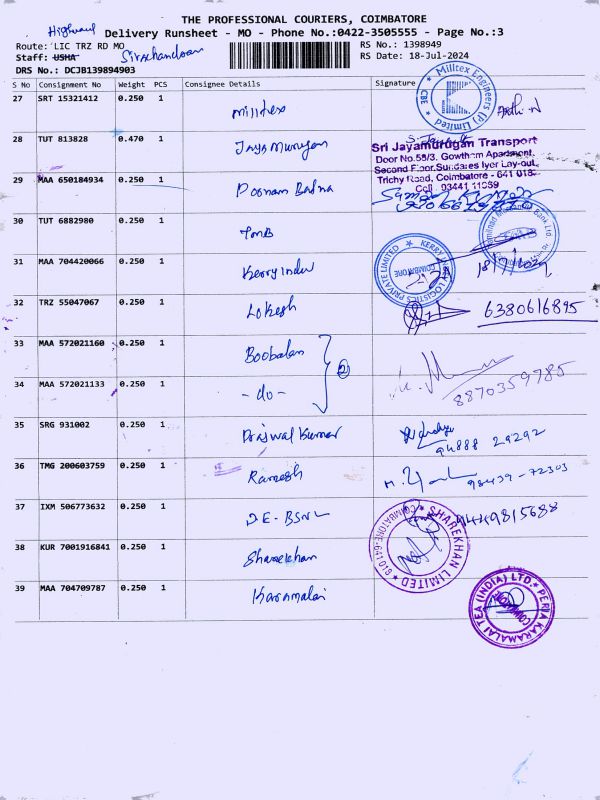 THE PROFESSIONAL COURIERS, COIMBATORE
Delivery Runsheet - MO - Phone No.:0422-3505555 - Page No.:3
Route: LIC TRZ RD MO
RS No.: 1398949
Staff: USHA
RS Date: 18-Jul-2024
DRS No.: DCJB139894903
S No Consignment No Weight PCS Consignee Details Signature
27 SRT 15321412 0.250 1 Milltex
Milltex Engineers (P) Limited CBE
28 TUT 813828 0.470 1 Jaya Murugan
Sri Jayamurugan Transport
Door No.55/3, Gowtham Apartment,
Second Floor, Sundares Iyer Lay-out,
Trichy Road, Coimbatore - 641 018.
Cell : 93441 11059
29 MAA 650184934 0.250 1 Poonam Badna
30 TUT 6882980 0.250 1 TMB
31 MAA 704420066 0.250 1 Kerry Indev
KERRY INDEV LOGISTICS PRIVATE LIMITED COIMBATORE
32 TRZ 55047067 0.250 1 Lokesh 6380616895
33 MAA 572021160 0.250 1 Boobalan
2
34 MAA 572021133 0.250 1 - do - 8870359785
35 SRG 931002 0.250 1 Prajwal Kumar
94888 29292
36 TMG 200603759 0.250 1 Ramesh 98439-72303
37 IXM 506773632 0.250 1 D.E-BSNL 9449815688
38 KUR 7001916841 0.250 1 Sharekhan
SHAREKHAN LIMITED
39 MAA 704709787 0.250 1 Karamalai
PERIA KARAMALAI TEA (INDIA) LTD.